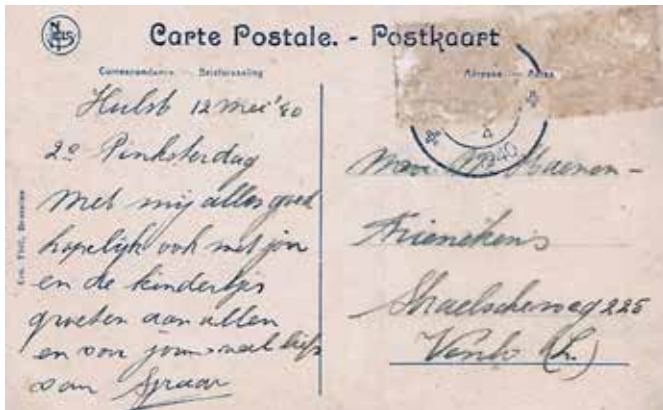 Carte Postale. - Postkaart
Correspondance — Briefwisseling
Adresse — Adres
Hulst 12 mei '40
2e Pinksterdag
Met mij alles goed
hopelijk ook met jou
en de kindertjes
groeten aan allen
en voor jou veel liefs
van Sjraar
1940
Mevr. M. Haenen-
Frienekens
Straelscheweg 225
Venlo (L.)
Ern. Thill, Bruxelles